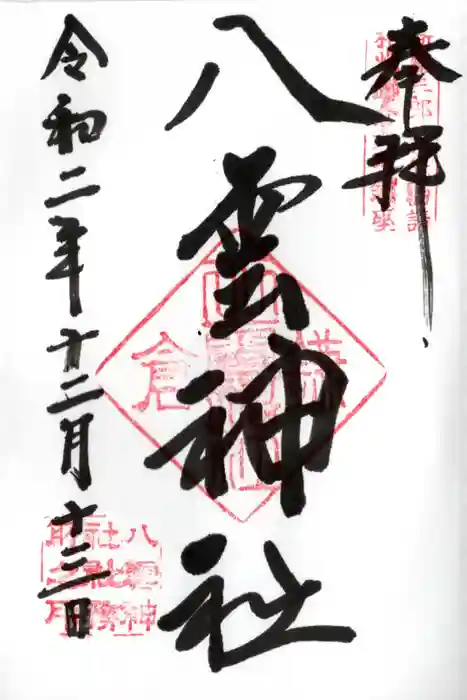 奉拝
八雲神社
令和二年十二月十三日
鎌倉
八雲神
社社務
所之印